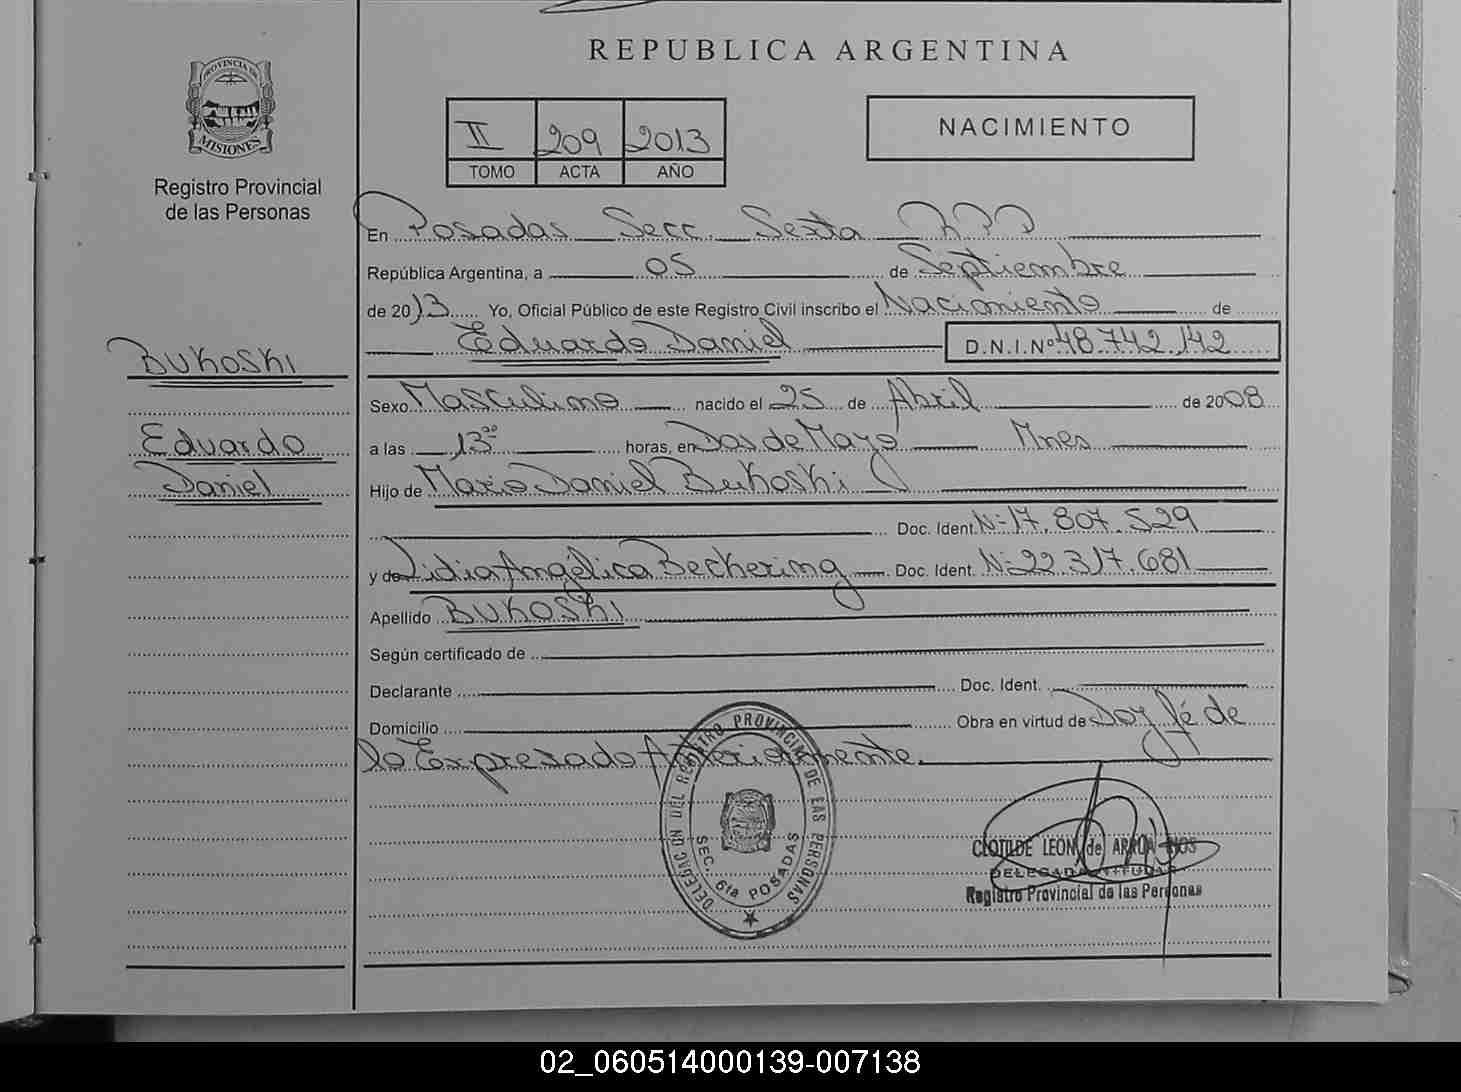 REPUBLICA ARGENTINA
PROVINCIA DE
MISIONES
Registro Provincial
de las Personas
II 209 2013
TOMO ACTA AÑO
NACIMIENTO
En Posadas Secc. Sexta RPP
República Argentina, a 05 de Septiembre
de 2013 Yo, Oficial Público de este Registro Civil inscribo el Nacimiento de
Eduardo Daniel D.N.I.Nº 48.742.142
Bukoski
Eduardo
Daniel
Sexo Masculino nacido el 25 de Abril de 2008
a las 13 horas, en Dos de Mayo Mnes
Hijo de Mario Daniel Bukoski
Doc. Ident. Nº 17.807.529
y de Lidia Angélica Beckering Doc. Ident. Nº 22.317.681
Apellido BUKOSKI
Según certificado de
Declarante Doc. Ident.
Domicilio Obra en virtud de Doy fé de
lo Expresado Anteriormente.
DELEGACION DEL REGISTRO PROVINCIAL DE LAS PERSONAS
SEC. 6ta POSADAS
CLOTILDE LEON de
DELEGADA TITULAR
Registro Provincial de las Personas
02_060514000139-007138